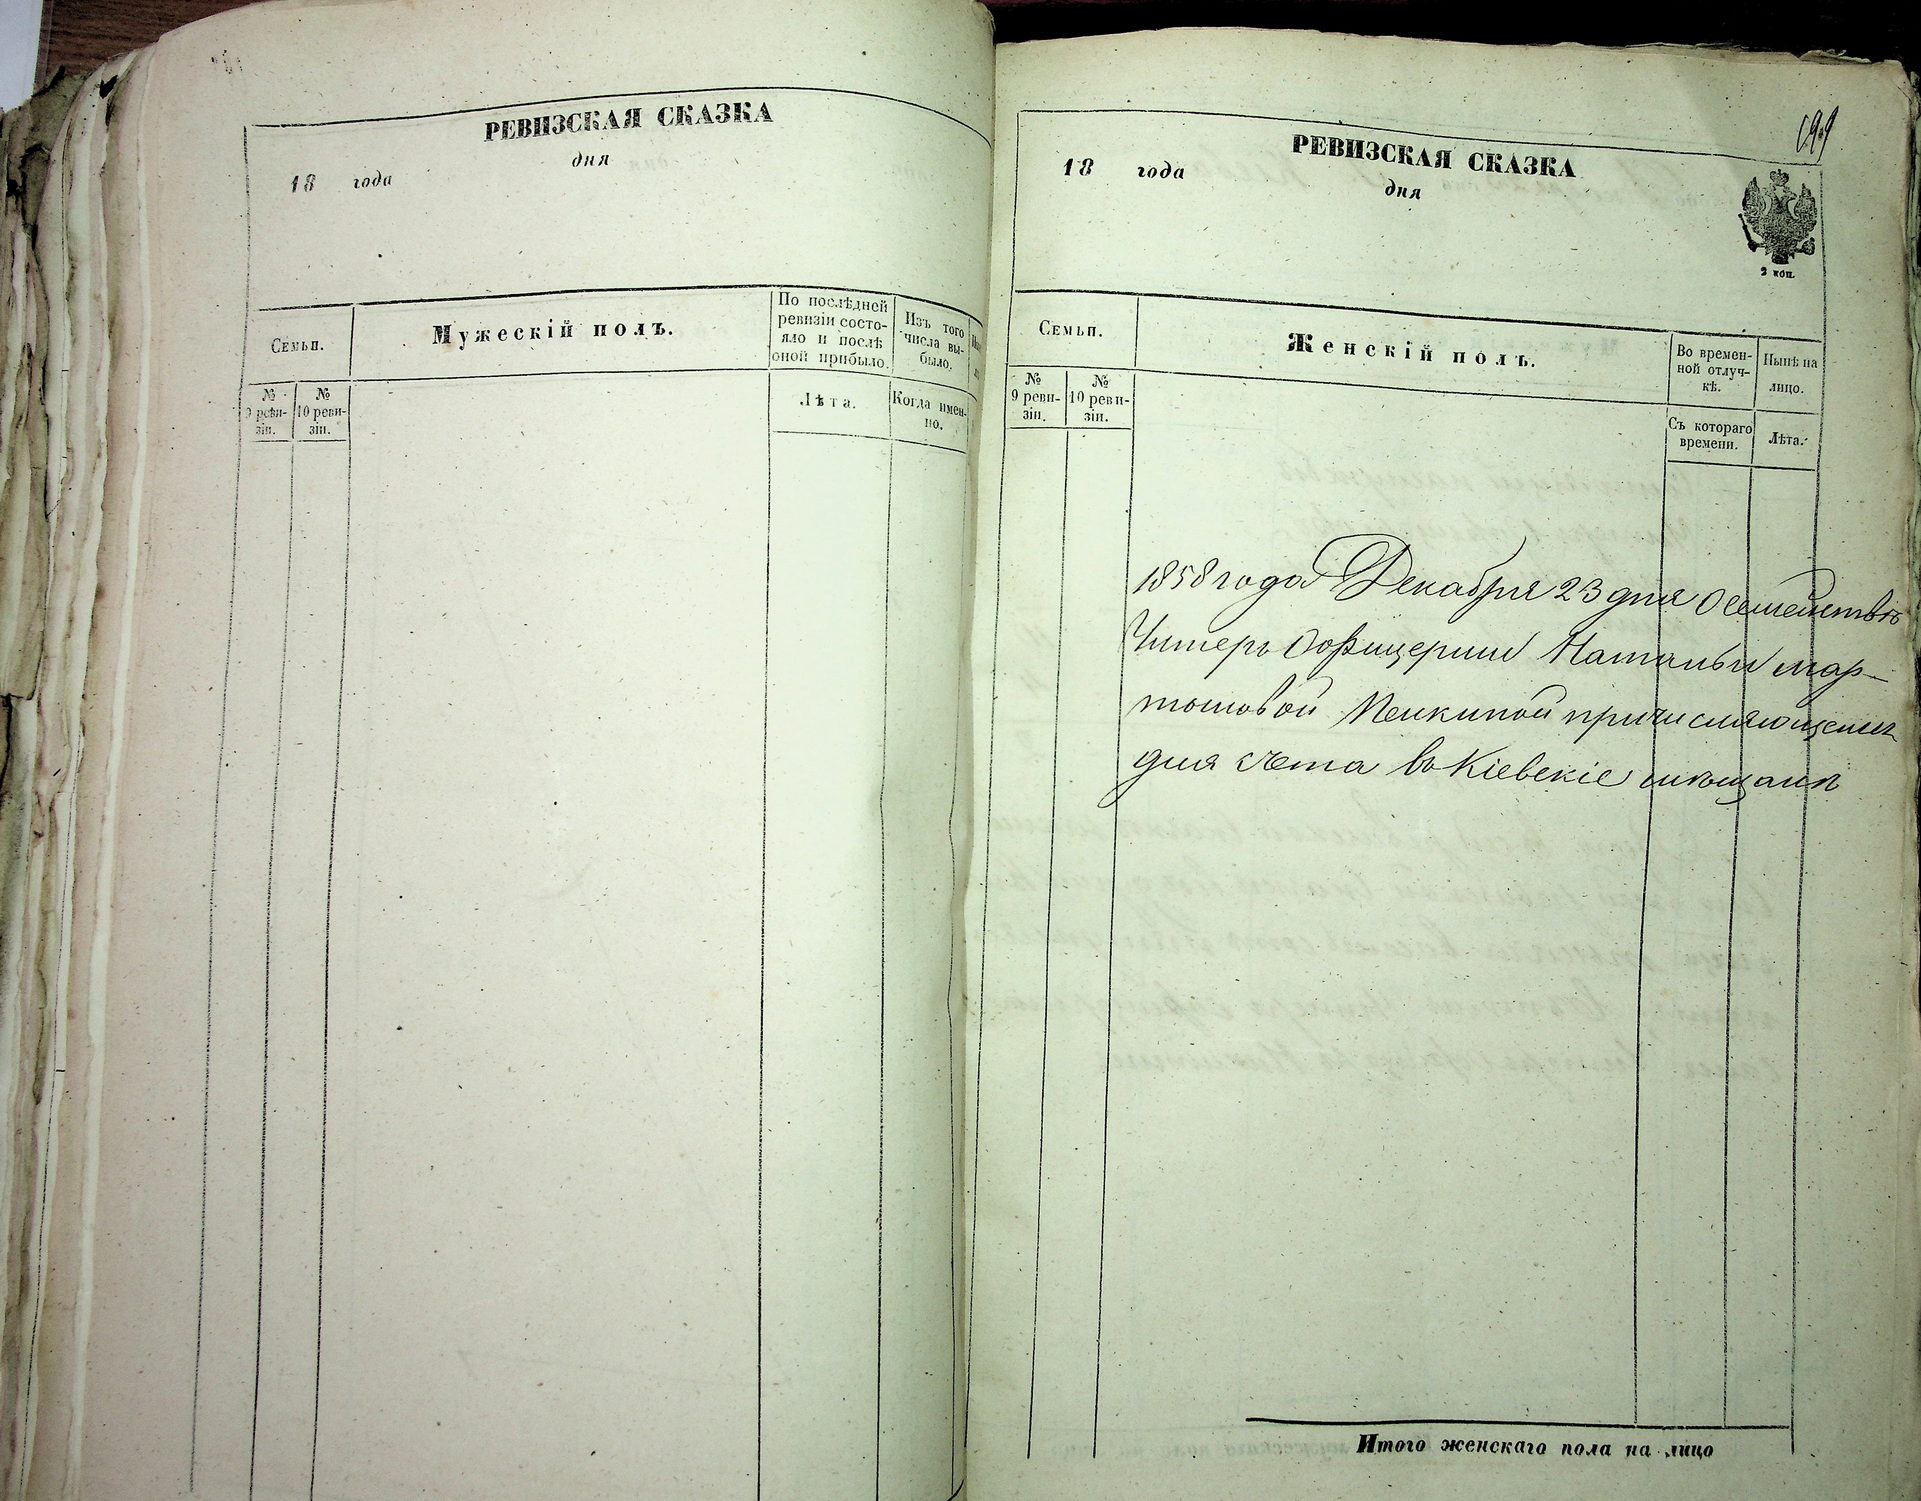 РЕВИЗСКАЯ СКАЗКА
18 года дня
Семьи.
Мужескій полъ.
По послѣдней
ревизіи состо-
яло и послѣ
оной прибыло.
Изъ того
числа вы-
было.
№
9 реви-
зіи.
№
10 реви-
зіи.
Лѣта.
Когда имен-
но.
199
РЕВИЗСКАЯ СКАЗКА
18 года дня
2 коп.
Семьи.
Женскій полъ.
Во времен-
ной отлуч-
кѣ.
Нынѣ на
лицо.
№
9 реви-
зіи.
№
10 реви-
зіи.
Съ котораго
времени.
Лѣта.
1858 года Декабря 23 дня О семействѣ
Унтеръ Офицерши Натальи Мар-
причисляющемся
для счета въ Кіевскіе мѣщане
Итого женскаго пола на лицо